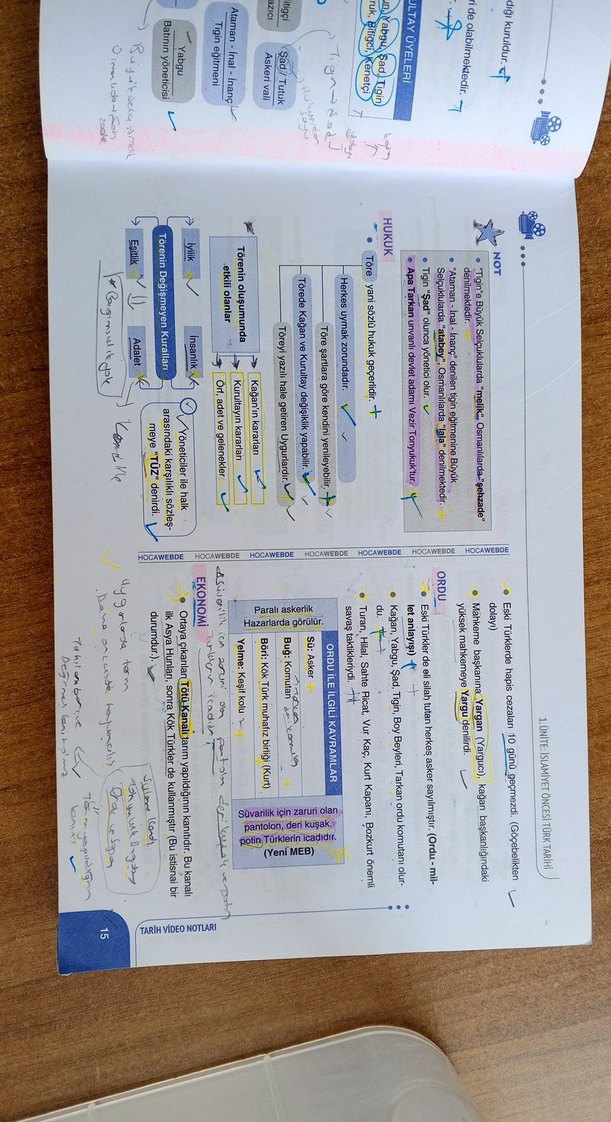 dığı kuruldur.
ri de olabilmektedir.
ULTAY ÜYELERİ
un, Yabgu, Şad, Tigin
ruk, Bitigci, Kenetçi
Bitigçi
azıcı
Şad / Tutuk
Askeri vali
Ataman - İnal - İnanç
Tigin eğitmeni
Yabgu
Batının yöneticisi
1. ÜNİTE: İSLAMİYET ÖNCESİ TÜRK TARİHİ
NOT
• "Tigin"e Büyük Selçuklularda "melik", Osmanlılarda "şehzade"
denilmektedir.
• "Ataman - İnal - İnanç" denilen tigin eğitmenine Büyük
Selçuklularda "atabey", Osmanlılarda "lala" denilmektedir.
• Tigin "Şad" olunca yönetici olur.
• Apa Tarkan unvanlı devlet adamı Vezir Tonyukuk'tur.
HUKUK
• Töre yani sözlü hukuk geçerlidir.
Herkes uymak zorundadır.
Töre şartlara göre kendini yenileyebilir.
Törede Kağan ve Kurultay değişiklik yapabilir.
Töreyi yazılı hale getiren Uygurlardır.
Törenin oluşumunda
etkili olanlar
Kağan'ın kararları
Kurultayın kararları
Örf, adet ve gelenekler
İyilik
İnsanlık
Törenin Değişmeyen Kuralları
Eşitlik
Adalet
Yöneticiler ile halk
arasındaki karşılıklı sözleş-
meye "TÜZ" denirdi.
HOCAWEBDE HOCAWEBDE HOCAWEBDE HOCAWEBDE HOCAWEBDE HOCAWEBDE HOCAWEBDE
• Eski Türklerde hapis cezaları 10 günü geçmezdi. (Göçebelikten
dolayı)
• Mahkeme başkanına Yargan (Yargucı), kağan başkanlığındaki
yüksek mahkemeye Yargu denilirdi.
ORDU
• Eski Türkler de eli silah tutan herkes asker sayılmıştır. (Ordu - mil-
let anlayışı)
• Kağan, Yabgu, Şad, Tigin, Boy Beyleri, Tarkan ordu komutanı olur-
du.
• Turan, Hilal, Sahte Ricat, Vur Kaç, Kurt Kapanı, Bozkurt önemli
savaş taktikleriydi.
ORDU İLE İLGİLİ KAVRAMLAR
Paralı askerlik
Hazarlarda görülür.
Sü: Asker
Buğ: Komutan
Böri: Kök Türk muhafız birliği (Kurt)
Yelme: Keşif kolu
Süvarilik için zaruri olan
pantolon, deri kuşak,
potin Türklerin icadıdır.
(Yeni MEB)
EKONOMİ
• Ortaya çıkarılan Tötü Kanalı tarım yapıldığının kanıtıdır. Bu kanalı
ilk Asya Hunları, sonra Kök Türkler de kullanmıştır (Bu istisnai bir
durumdur.).
TARİH VİDEO NOTLARI
15